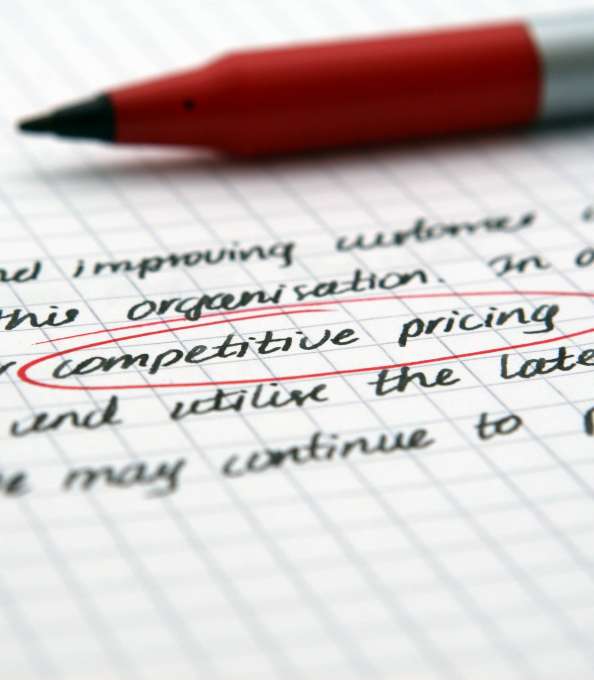 nd improving customer
this organisation. In o
r competitive pricing
and utilise the late
e may continue to p